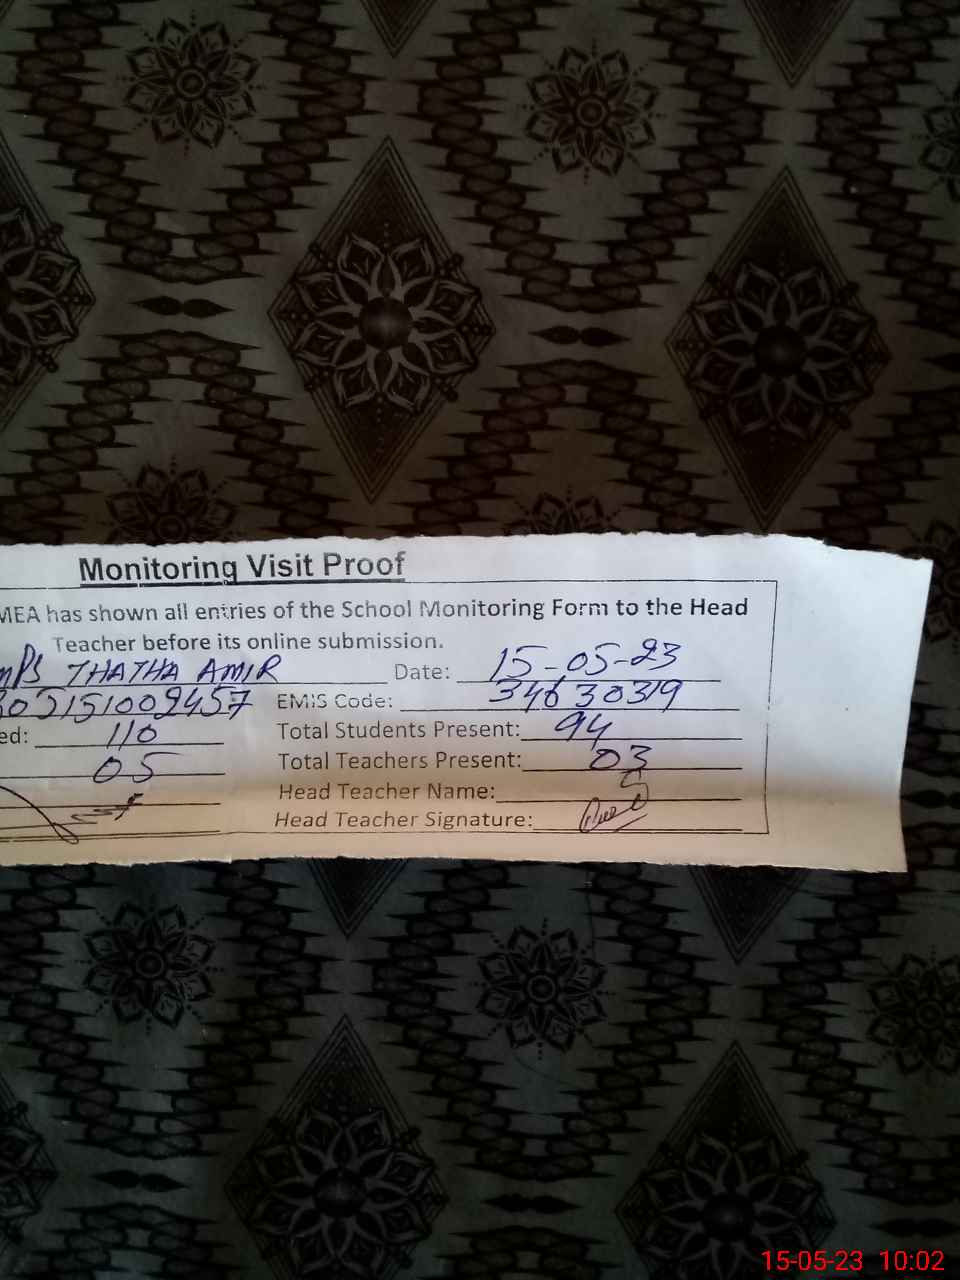 Monitoring Visit Proof
MEA has shown all entries of the School Monitoring Form to the Head
Teacher before its online submission.
mPS THATHA AMIR Date: 15-05-23
305151009457 EMIS Code: 34630319
ed: 110 Total Students Present: 94
05 Total Teachers Present: 03
Head Teacher Name:
Head Teacher Signature:
15-05-23 10:02